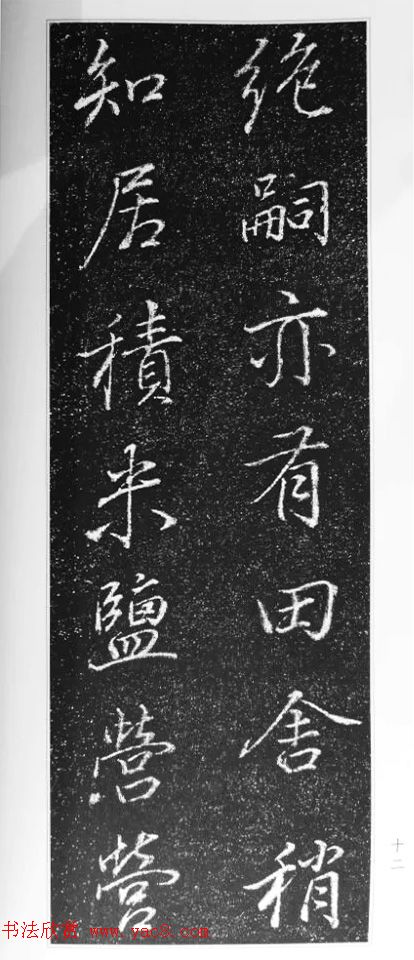 绝嗣亦有田舍稍
知居積米鹽營營
十二
书法欣赏 www.yac8.com